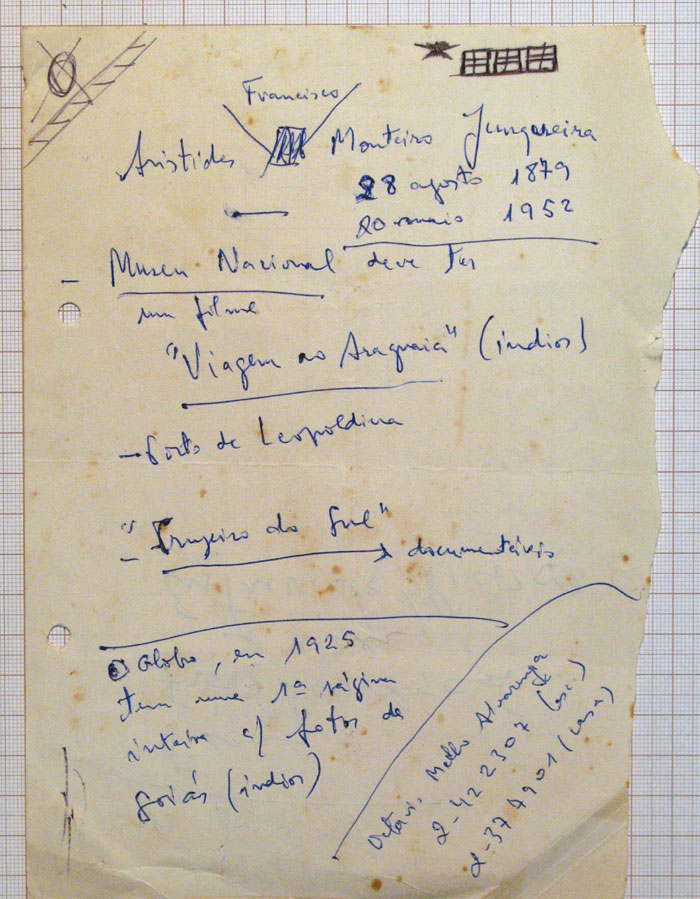 Francisco
Aristides Monteiro Junqueira
28 agosto 1879
20 maio 1952
– Museu Nacional deve ter
um filme
"Viagem ao Araguaia" (índios)
– Porto de Leopoldina
– "Cruzeiro do Sul" → documentário
O Globo, em 1925
tem uma 1ª página
inteira c/ fotos de
Goiás (índios)
Octavio Mello Alvarenga
2-422307 (esc.)
2-377901 (casa)